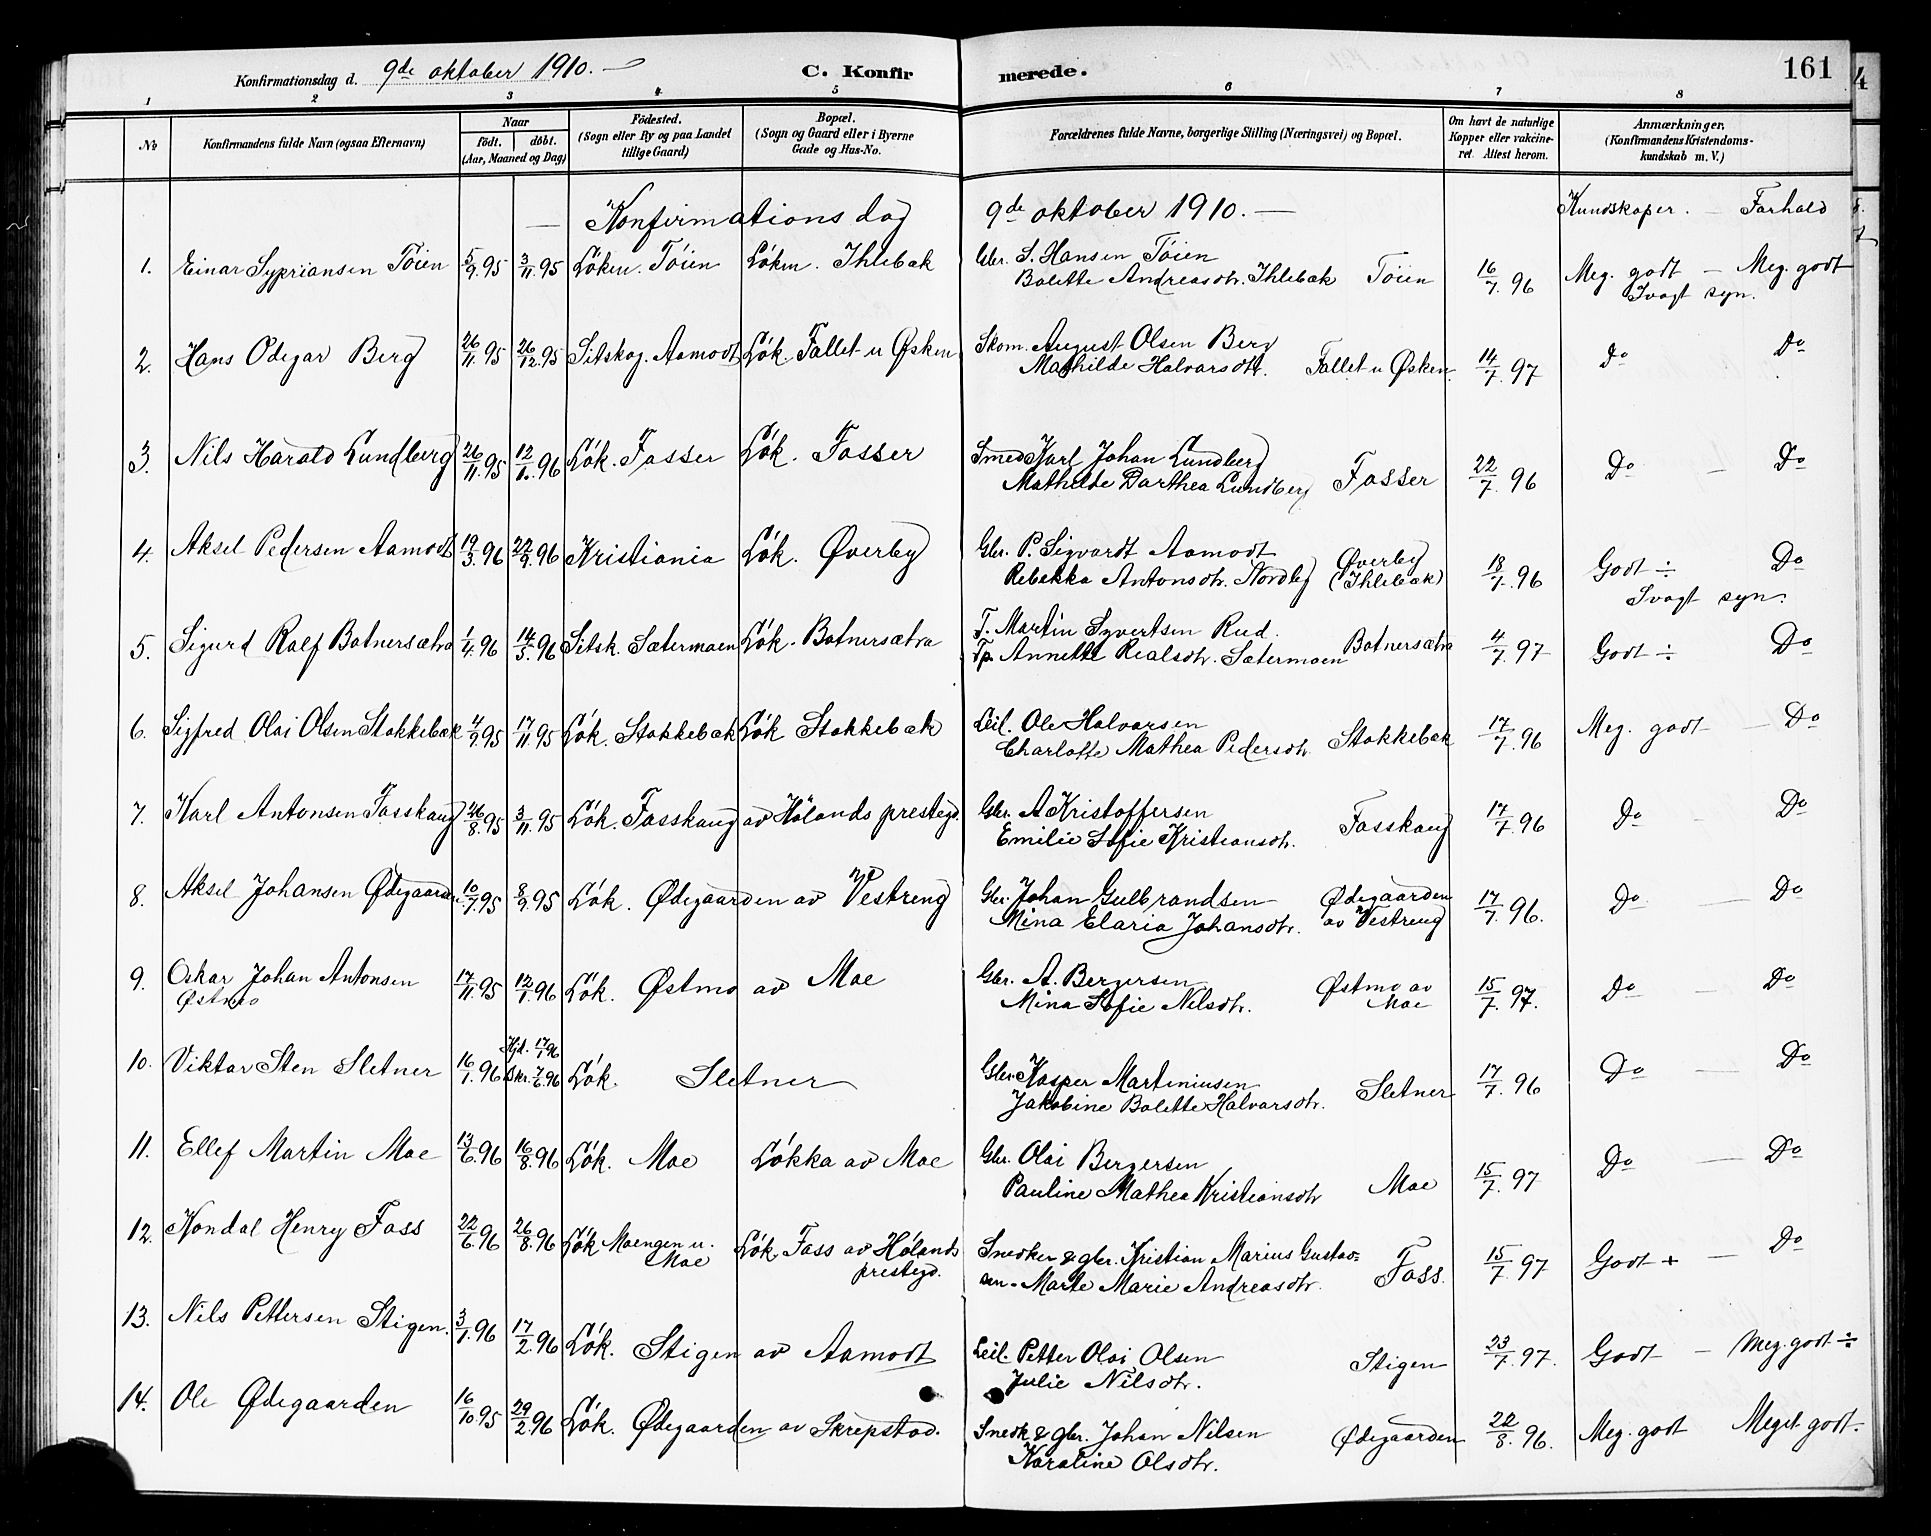 Konfirmationsdag d. 9de oktober 1910. —
C. Konfirmerede.
161
1 2 3 4 5 6 7 8
No
Konfirmandens fulde Navn (ogsaa Efternavn)
Naar
födt. döbt.
(Aar, Maaned og Dag)
Födested.
(Sogn eller By og paa Landet
tillige Gaard)
Bopæl.
(Sogn og Gaard eller i Byerne
Gade og Hus-No.
Forældrenes fulde Navne, borgerlige Stilling (Næringsvei) og Bopæl.
Om havt de naturlige
Kopper eller vakcine-
ret. Attest herom.
Anmærkninger.
(Konfirmandens Kristendoms-
kundskab m. V.)
— Konfirmations dag 9de oktober 1910. — Kundskaper. — Forhold
1. Einar Sypriansen Töien 5/9.95 3/11.95 Lökm. Töien Lökm. Ihlebæk Gbr. S. Hansen Töien
Bolette Andreasdtr. Ihlebæk Töien 16/7.96 Meg. godt — Meg. godt
Svagt syn.
2. Hans Odegar Berg 26/11.95 26/12.95 Sitskog. Aamodt Lök. Fallet u Øsken Skom. August Olsen Berg
Mathilde Halvarsdtr. Fallet u Øsken. 14/7.97 Do Do
3. Nils Harald Lundberg 26/11.95 12/1.96 Lök. Fosser Lök. Fosser Smed Karl Johan Lundberg
Mathilde Dorthea Lundberg Fosser 22/7.96 Do — Do
4. Aksel Pedersen Aamodt 19/3.96 22/9.96 Kristiania Lök. Øverby Gbr. P. Sigvardt Aamodt
Rebekka Antonsdtr. Nordby Øverby (Ihlebæk) 18/7.96 Godt ÷ Do
Svagt syn.
5. Sigurd Rolf Botnersætra 1/4.96 14/5.96 Sitsk. Sætermoen Lök. Botnersætra F. Martin Syvertsen Rud.
Tp. Annette Realsdtr. Sætermoen Botnersætra 4/7.97 Godt ÷ Do
6. Sigfred Olai Olsen Stokkebæk 4/9.95 17/11.95 Lök. Stokkebæk Lök Stokkebæk Leil. Ole Halvorsen
Charlotte Mathea Pedersdtr. Stokkebæk 17/7.96 Meg. godt — Do
7. Karl Antonsen Fosskaug 26/8.95 3/11.95 Lök. Fosskaug av Hølands prestegd. Gbr. A Kristoffersen
Emilie Sofie Kristiansdtr. Fosskaug 17/7.96 Do — Do
8. Aksel Johansen Ødegaarden 10/7.95 8/9.95 Lök. Ødegaarden av Vestreng Gbr. Johan Gulbrandsen
Mina Elaria Johansdtr. Ødegaarden av Vestreng 17/7.96. Do — Do
9. Oskar Johan Antonsen
Østmo 17/11.95 12/1.96 Lök. Østmo av Moe Gbr. A. Bergersen
Mina Sofie Nilsdtr. Østmo av Moe 15/7.97. Do — Do
10. Viktor Sten Sletner 16/1.96 Hjd. 17/1 96 Bkr. 7/6.96 Lök. Sletner Gbr. Kasper Martiniusen
Jakobine Bolette Halvorsdtr. Sletner 17/7.96 Do — Do
11. Ellef Martin Moe 13/6.96 16/8.96 Lök. Moe Løkka av Moe Gbr. Olai Bergersen
Pauline Mathea Kristiansdtr Moe 15/7.97 Do — Do
12. Kondal Henry Foss 22/6.96 26/8.96 Lök Moengen u. Moe Lök. Foss av Hölands prestegd. Snedker & gbr. Kristian Marius Gustav=
sen. Marte Marie Andreasdtr. Foss. 15/7.97 Godt + — Do
13. Nils Pettersen Stigen. 3/1.96 17/2.96 Lök. Stigen av Aamodt Leil. Petter Olai Olsen
Julie Nilsdtr. Stigen 23/7.97. Godt — Meg. godt ÷
14. Ole Ødegaarden 16/10.95 29/2.96 Lök. Ødegaarden av Skrepstad. Snedk & gbr. Johan Nilsen
Karoline Olsdtr. Ødegaarden 22/8.96. Meg. godt Meget godt.